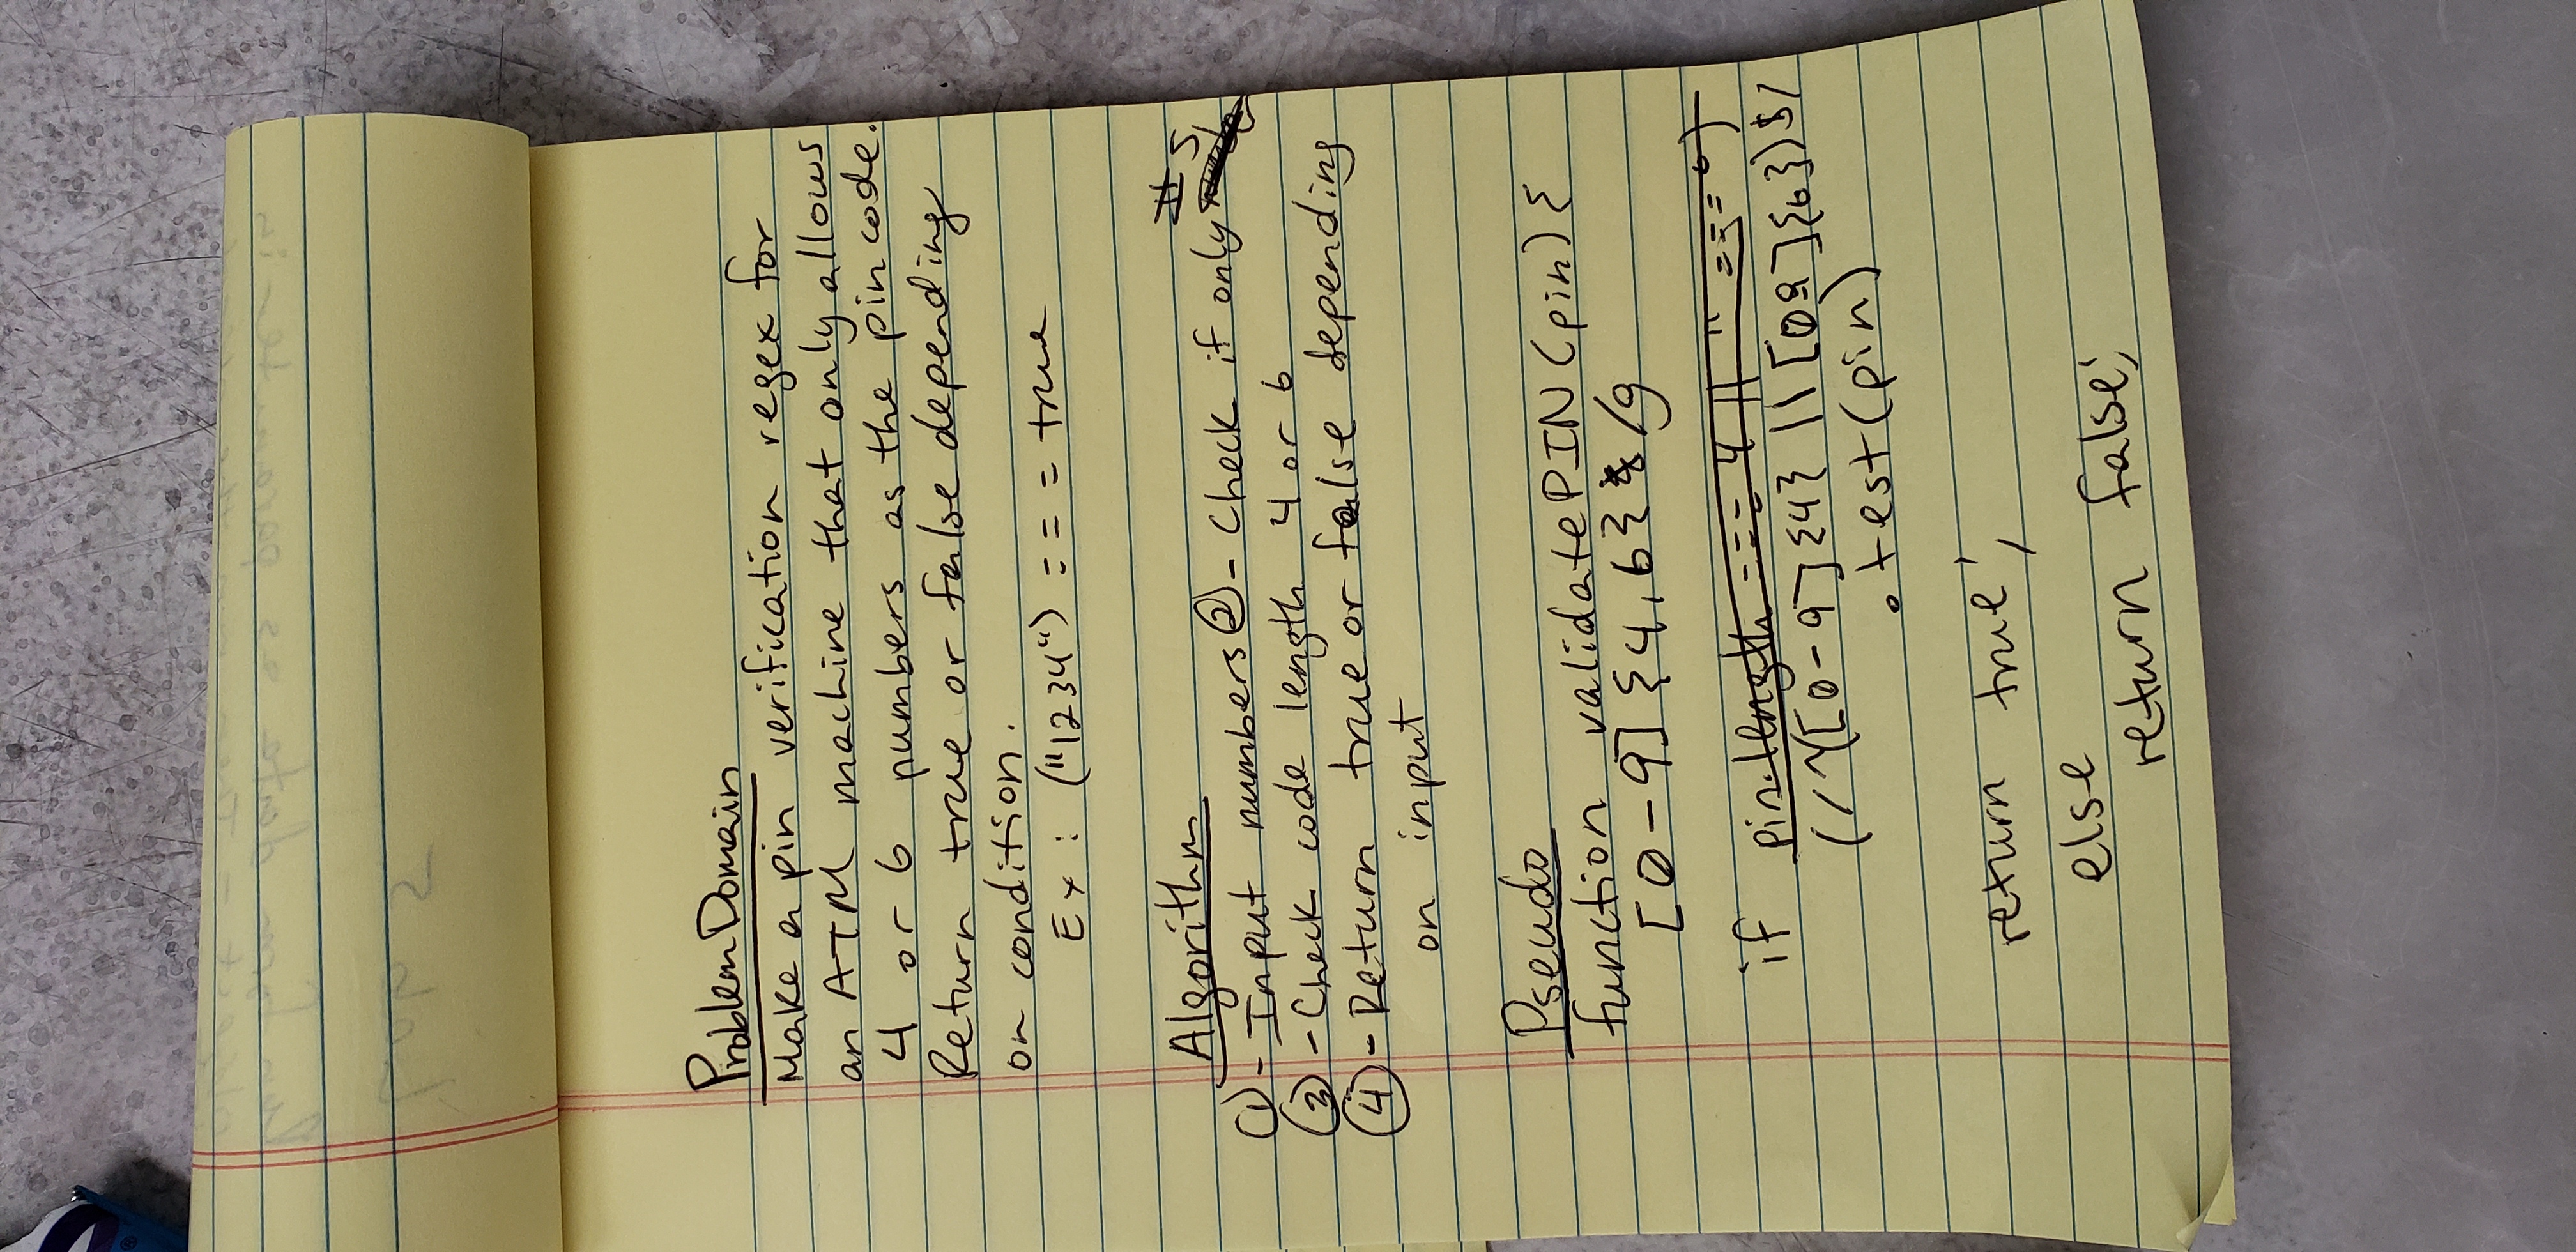 Problem Domain
Make a pin verification regex for
an ATM machine that only allows
4 or 6 numbers as the pin code.
Return true or false depending
on condition.
Ex : ("1234") === true
Algorithm
① - Input numbers ② - Check if only #s
③ - Check code length 4 or 6
④ - Return true or false depending
on input
Pseudo
function validatePIN (pin) {
[0-9] {4,6} /g
if pin.length === 4 || " === 6)
(/^([0-9]{4} || [09]{6})$/
.test(pin)
return true;
else
return false;